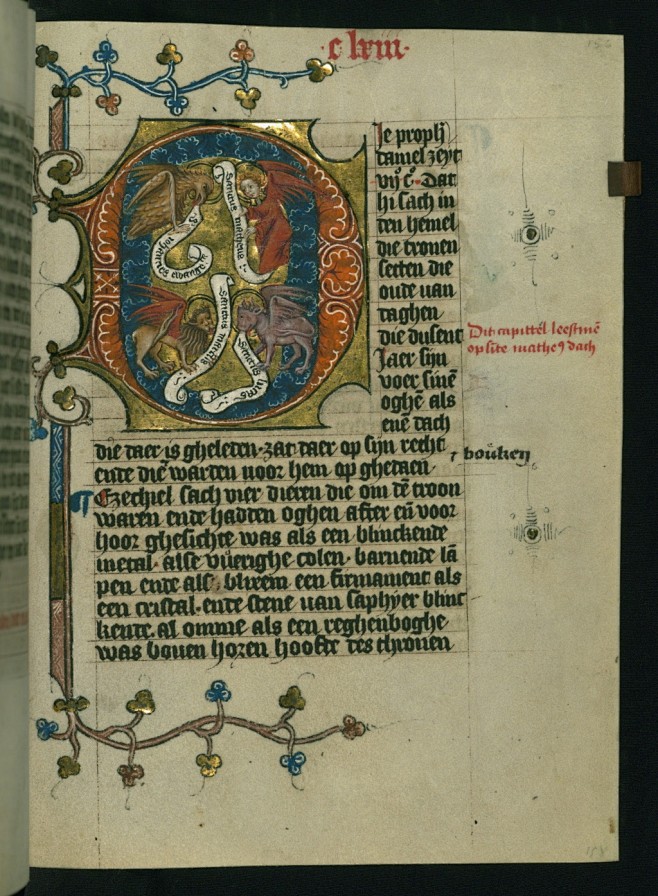 c lxiii
156
Sanctus matheus
Johannes ewange
Sanctus marcus
Sanctus lucas
Je prophē
daniel zeyt
vijº cº Dat
hi sach in
den hemel
die tronen
setten die
oude van
daghen
die dusent
Jaer sijn
voer sinē
oghē als
enē dach
die daer is gheleden. zat daer op sijn recht
ende diē warden voor hem op ghedaen
Ezechiel sach vier dieren die om dē troon
waren ende hadden oghen after eñ voor
hoor ghesichte was als een blinckende
metal. alse vüerighe colen. barnende lā
pen ende als blixem een firmament als
een cristal. ende stene van saphyer blinc
kende. al omme als een reghenboghe
was bouen horen hoofde des thronen
Dit capittel leestmē
op sīte matheꝰ dach
bouken